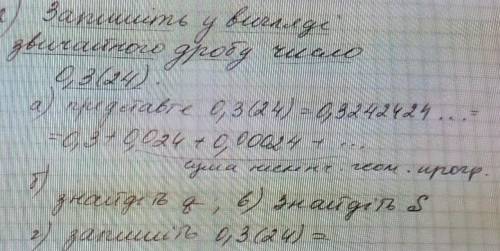 ) Запишіть у вигляді
звичайного дробу число
0,3(24).
а) представте 0,3(24) = 0,3242424 ... =
= 0,3 + 0,024 + 0,00024 + ...
сума нескінч. геом. прогр.
б)
знайдіть q, в) знайдіть S
г) запишіть 0,3(24) =